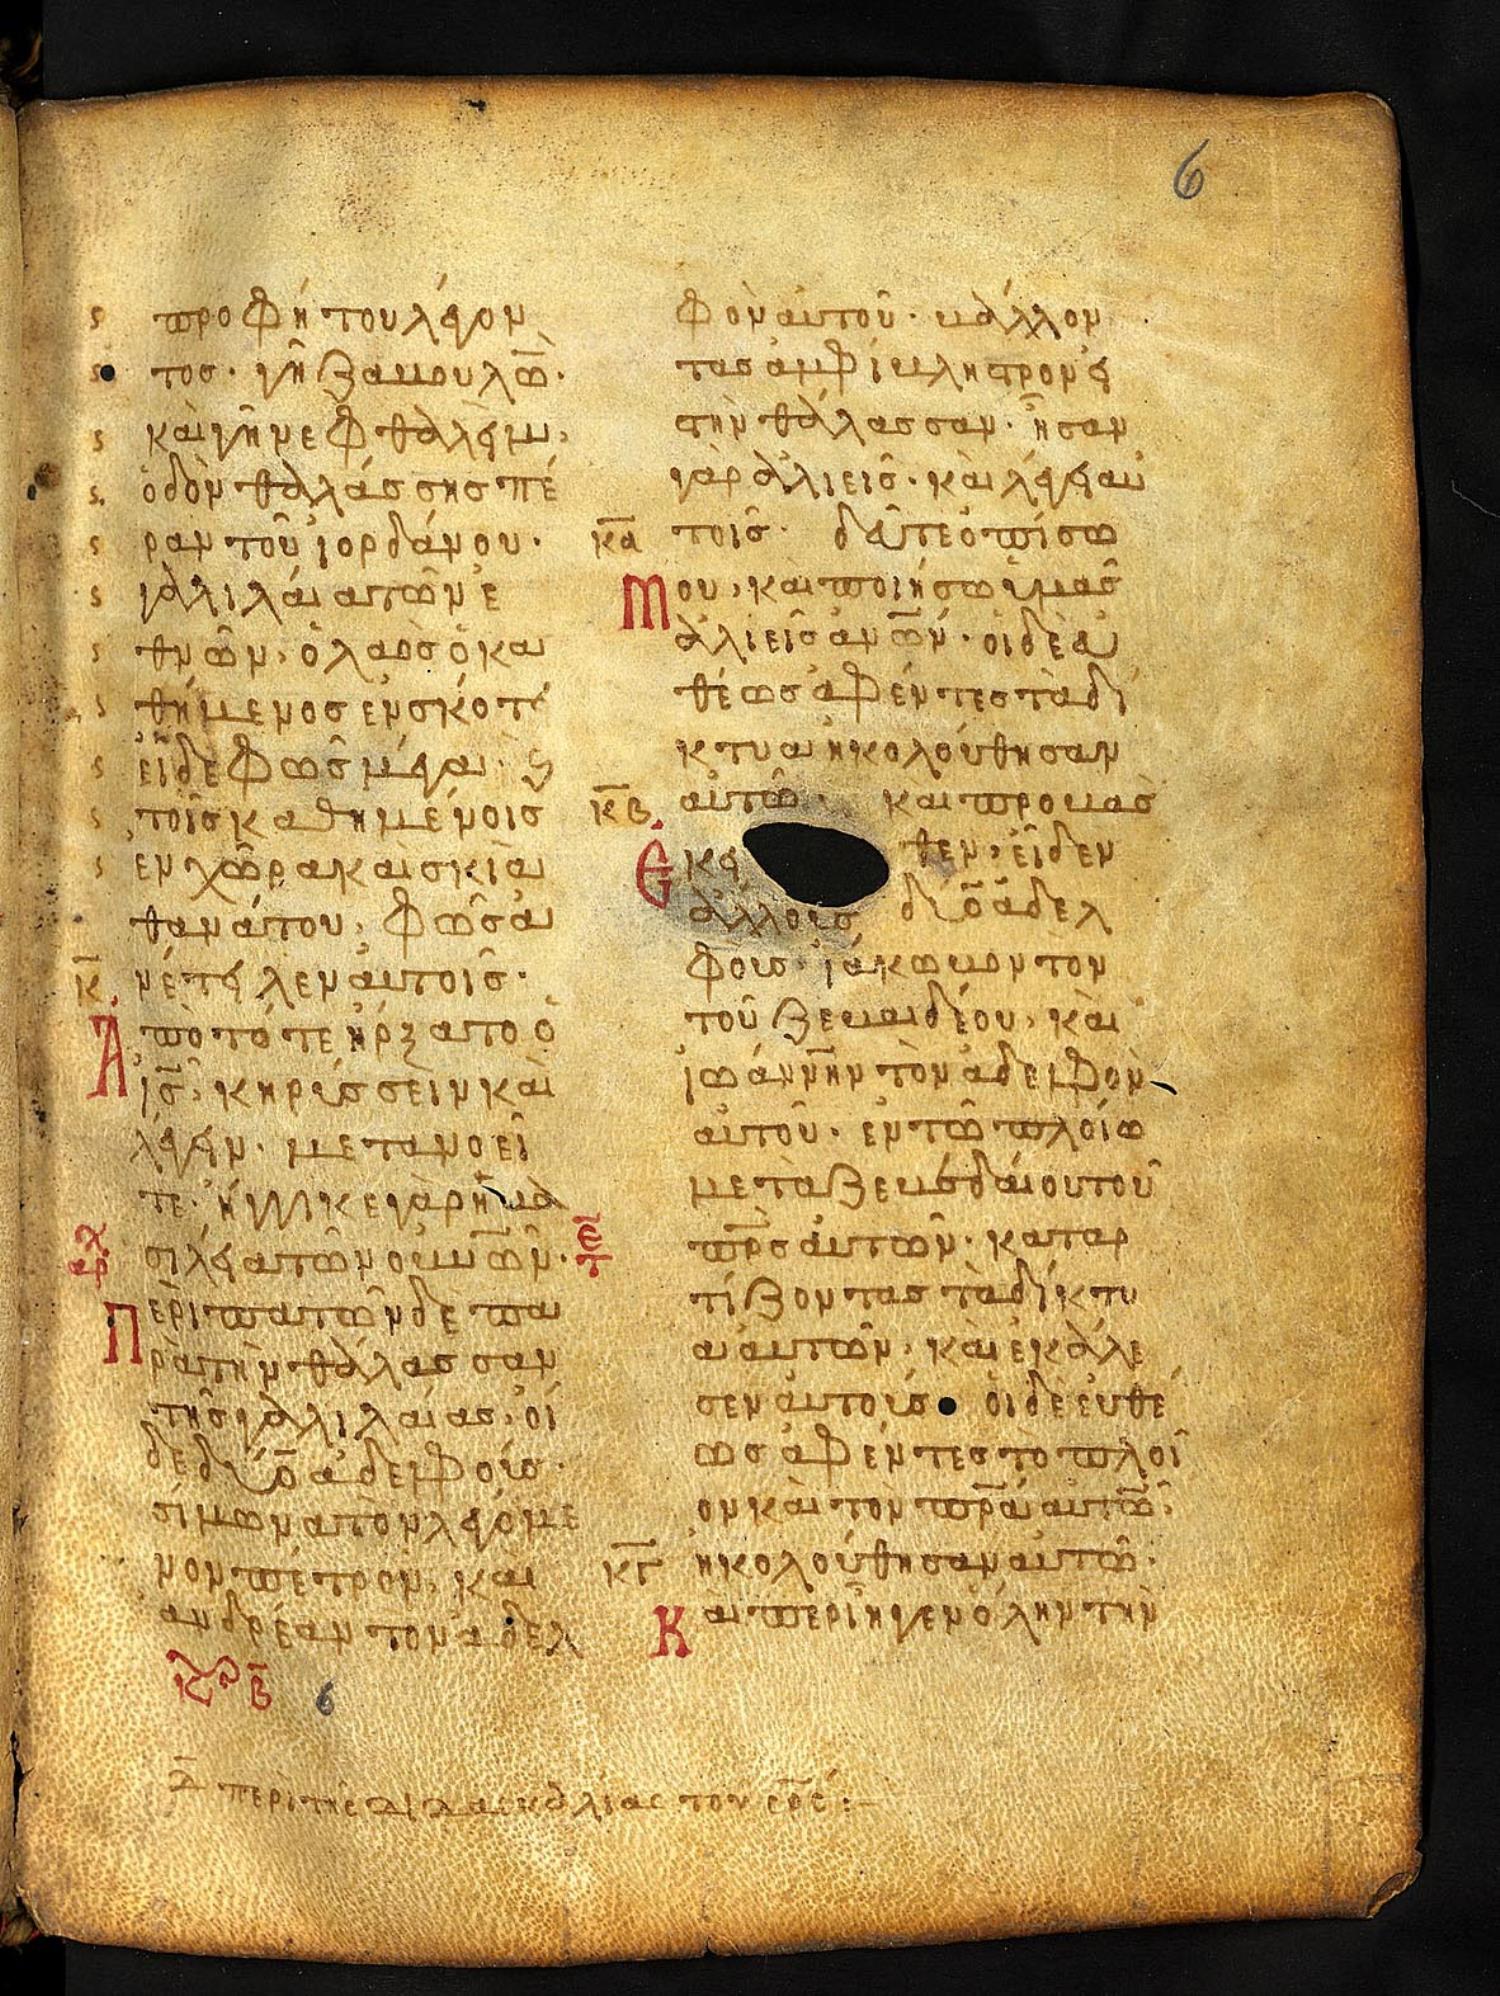 6
προφήτου λέγον
τος· γῆ ζαβουλῶ̅·
καὶ γῆ νεφθαλείμ,
ὁδὸν θαλάσσης πέ
ραν τοῦ ἰορδάνου·
γαλιλαία τῶν ἐ
θνῶν, ὁ λαὸς ὁ κα
θήμενος ἐν σκότει
εἶδε φῶς μέγα· ϛ
τοῖς καθημένοις
ἐν χώρα καὶ σκιὰ
θανάτου, φῶς ἀ
κ̅ νέτειλεν αὐτοῖς·
Ἀπὸ τότε ἤρξατο ὁ
ι̅ς̅, κηρύσσειν καὶ
λέγειν· μετανοεῖ
τε· ἤγγικε γὰρ ἡ βα
χ αρ σιλεία τῶν οὐ̅ν̅ῶν· ε̅ τ
Περιπατῶν δὲ πα
ρὰ τὴν θάλασσαν
τῆς γαλιλαίας, οἱ
δε δύο ἀδελφούς·
σίμωνα τὸν λεγόμε
νον πέτρον, καὶ
ανδρέαν τὸν ἀδελ
κυρ β̅ 6
φὸν αὐτοῦ· βάλλον
τας ἀμφίβληστρον εἰς
τὴν θάλασσαν· ἦσαν
γὰρ ἁλιεῖς· καὶ λέγει αὐ
κ̅α̅ τοῖς· δεῦτε ὀπίσω
Μου, καὶ ποιήσω ὑμᾶς
ἁλιεῖς α̅ν̅ω̅ν· οἱ δὲ εὐ
θέως ἀφέντες τὰ δί
κτυα ἠκολούθησαν
κ̅β̅ αὐτῶ· καὶ προβὰς
Ἐκεῖθεν, εἶδεν
ἄλλους δύο ἀδελ
φοὺς· ἰάκωβον τὸν
τοῦ ζεβεδαίου, καὶ
ἰωάννην τὸν ἀδελφὸν
αὐτοῦ· ἐν τῶ πλοίω
μετὰ ζεβεδαίου τοῦ
π̅ρ̅ς αὐτῶν· καταρ
τίζοντας τὰ δίκτυ
α αὐτῶν, καὶ ἐκάλε
σεν αὐτούς· οἱ δὲ εὐθέ
ως ἀφέντες τὸ πλοῖ
ον καὶ τὸν π̅ρ̅α αὐτῶ̅,
κ̅γ̅ ἠκολούθησαν αὐτῶ·
Και περιῆγεν ὅλην τὴν
α̅ περὶ τῆς διδασκαλίας τοῦ